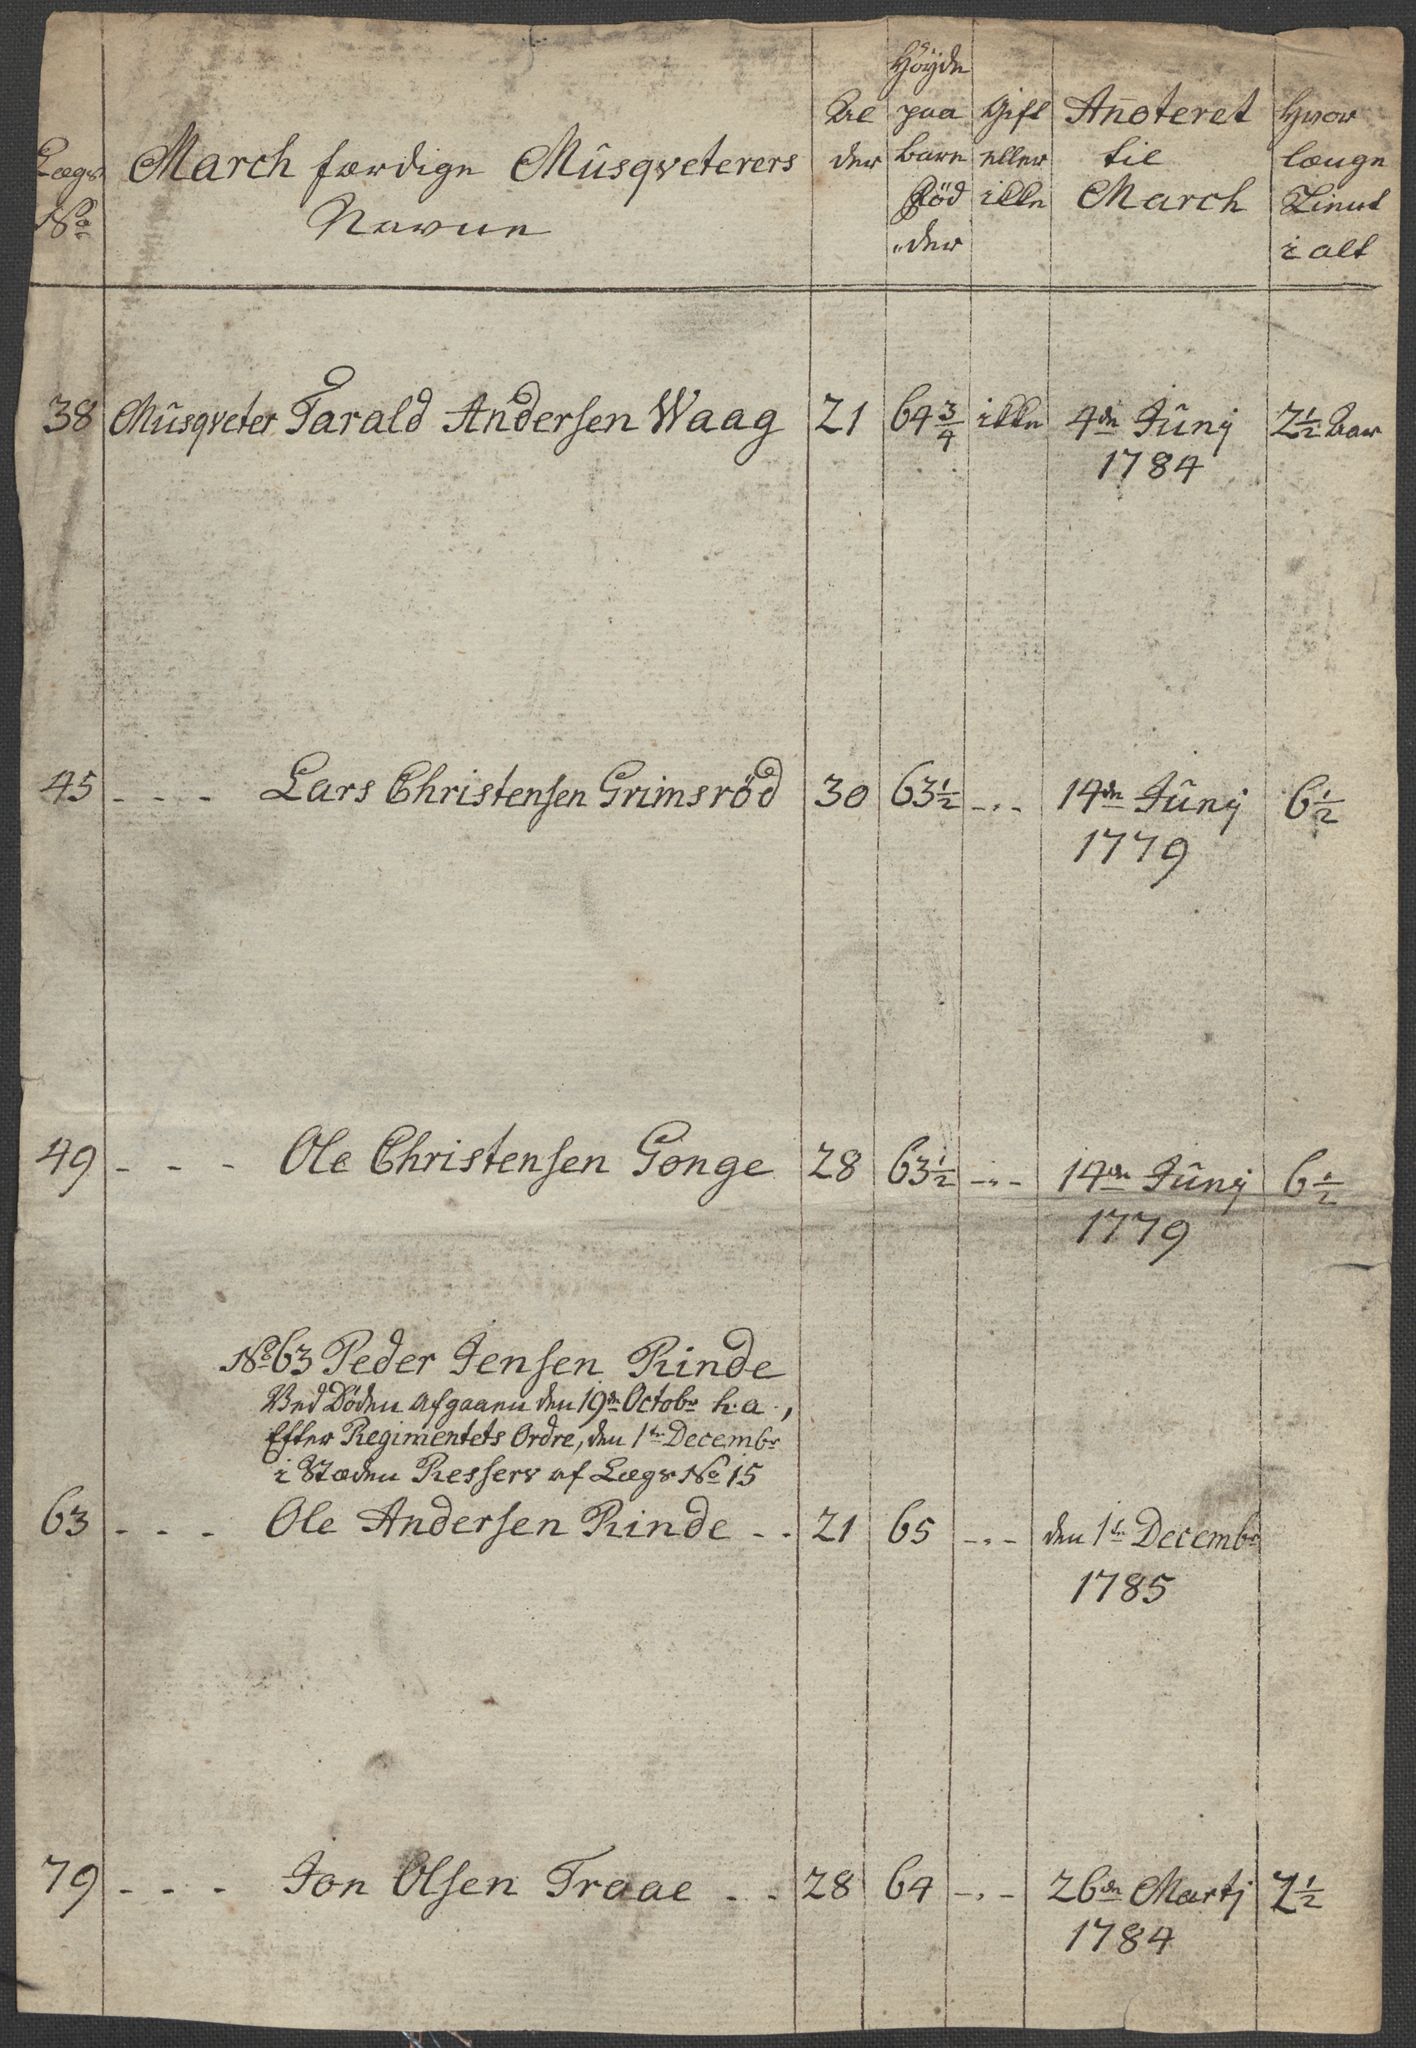 Lægs No March færdige Musqveterers Navne Alder Höyde paa bare Födder Gift eller ikke Anoteret til March Hvor længe Tient i alt
38 Musqveter Tarald Andersen Waag 21 64 3/4 ikke 4de Junj 2 1/2 Aar
1784
45 - - - Lars Christensen Grimsröd 30 63 1/2 -.- 14de Junj 6 1/2
1779
49 - - - Ole Christensen Gonge 28 63 1/2 -.- 14de Junj 6 1/2
1779
No 63 Peder Jensen Rinde
Ved Döden afgaaen den 19de Octobr h: a:,
Efter Regimentets Ordre, den 1te Decembr
i Stæden Resserv af Lægs No 15
63 - - - Ole Andersen Rinde - - 21 65 -.- den 1te Decembr
1785
79 - - - Jon Olsen Traae - - 28 64 -.- 26de Martj 2 1/2
1784